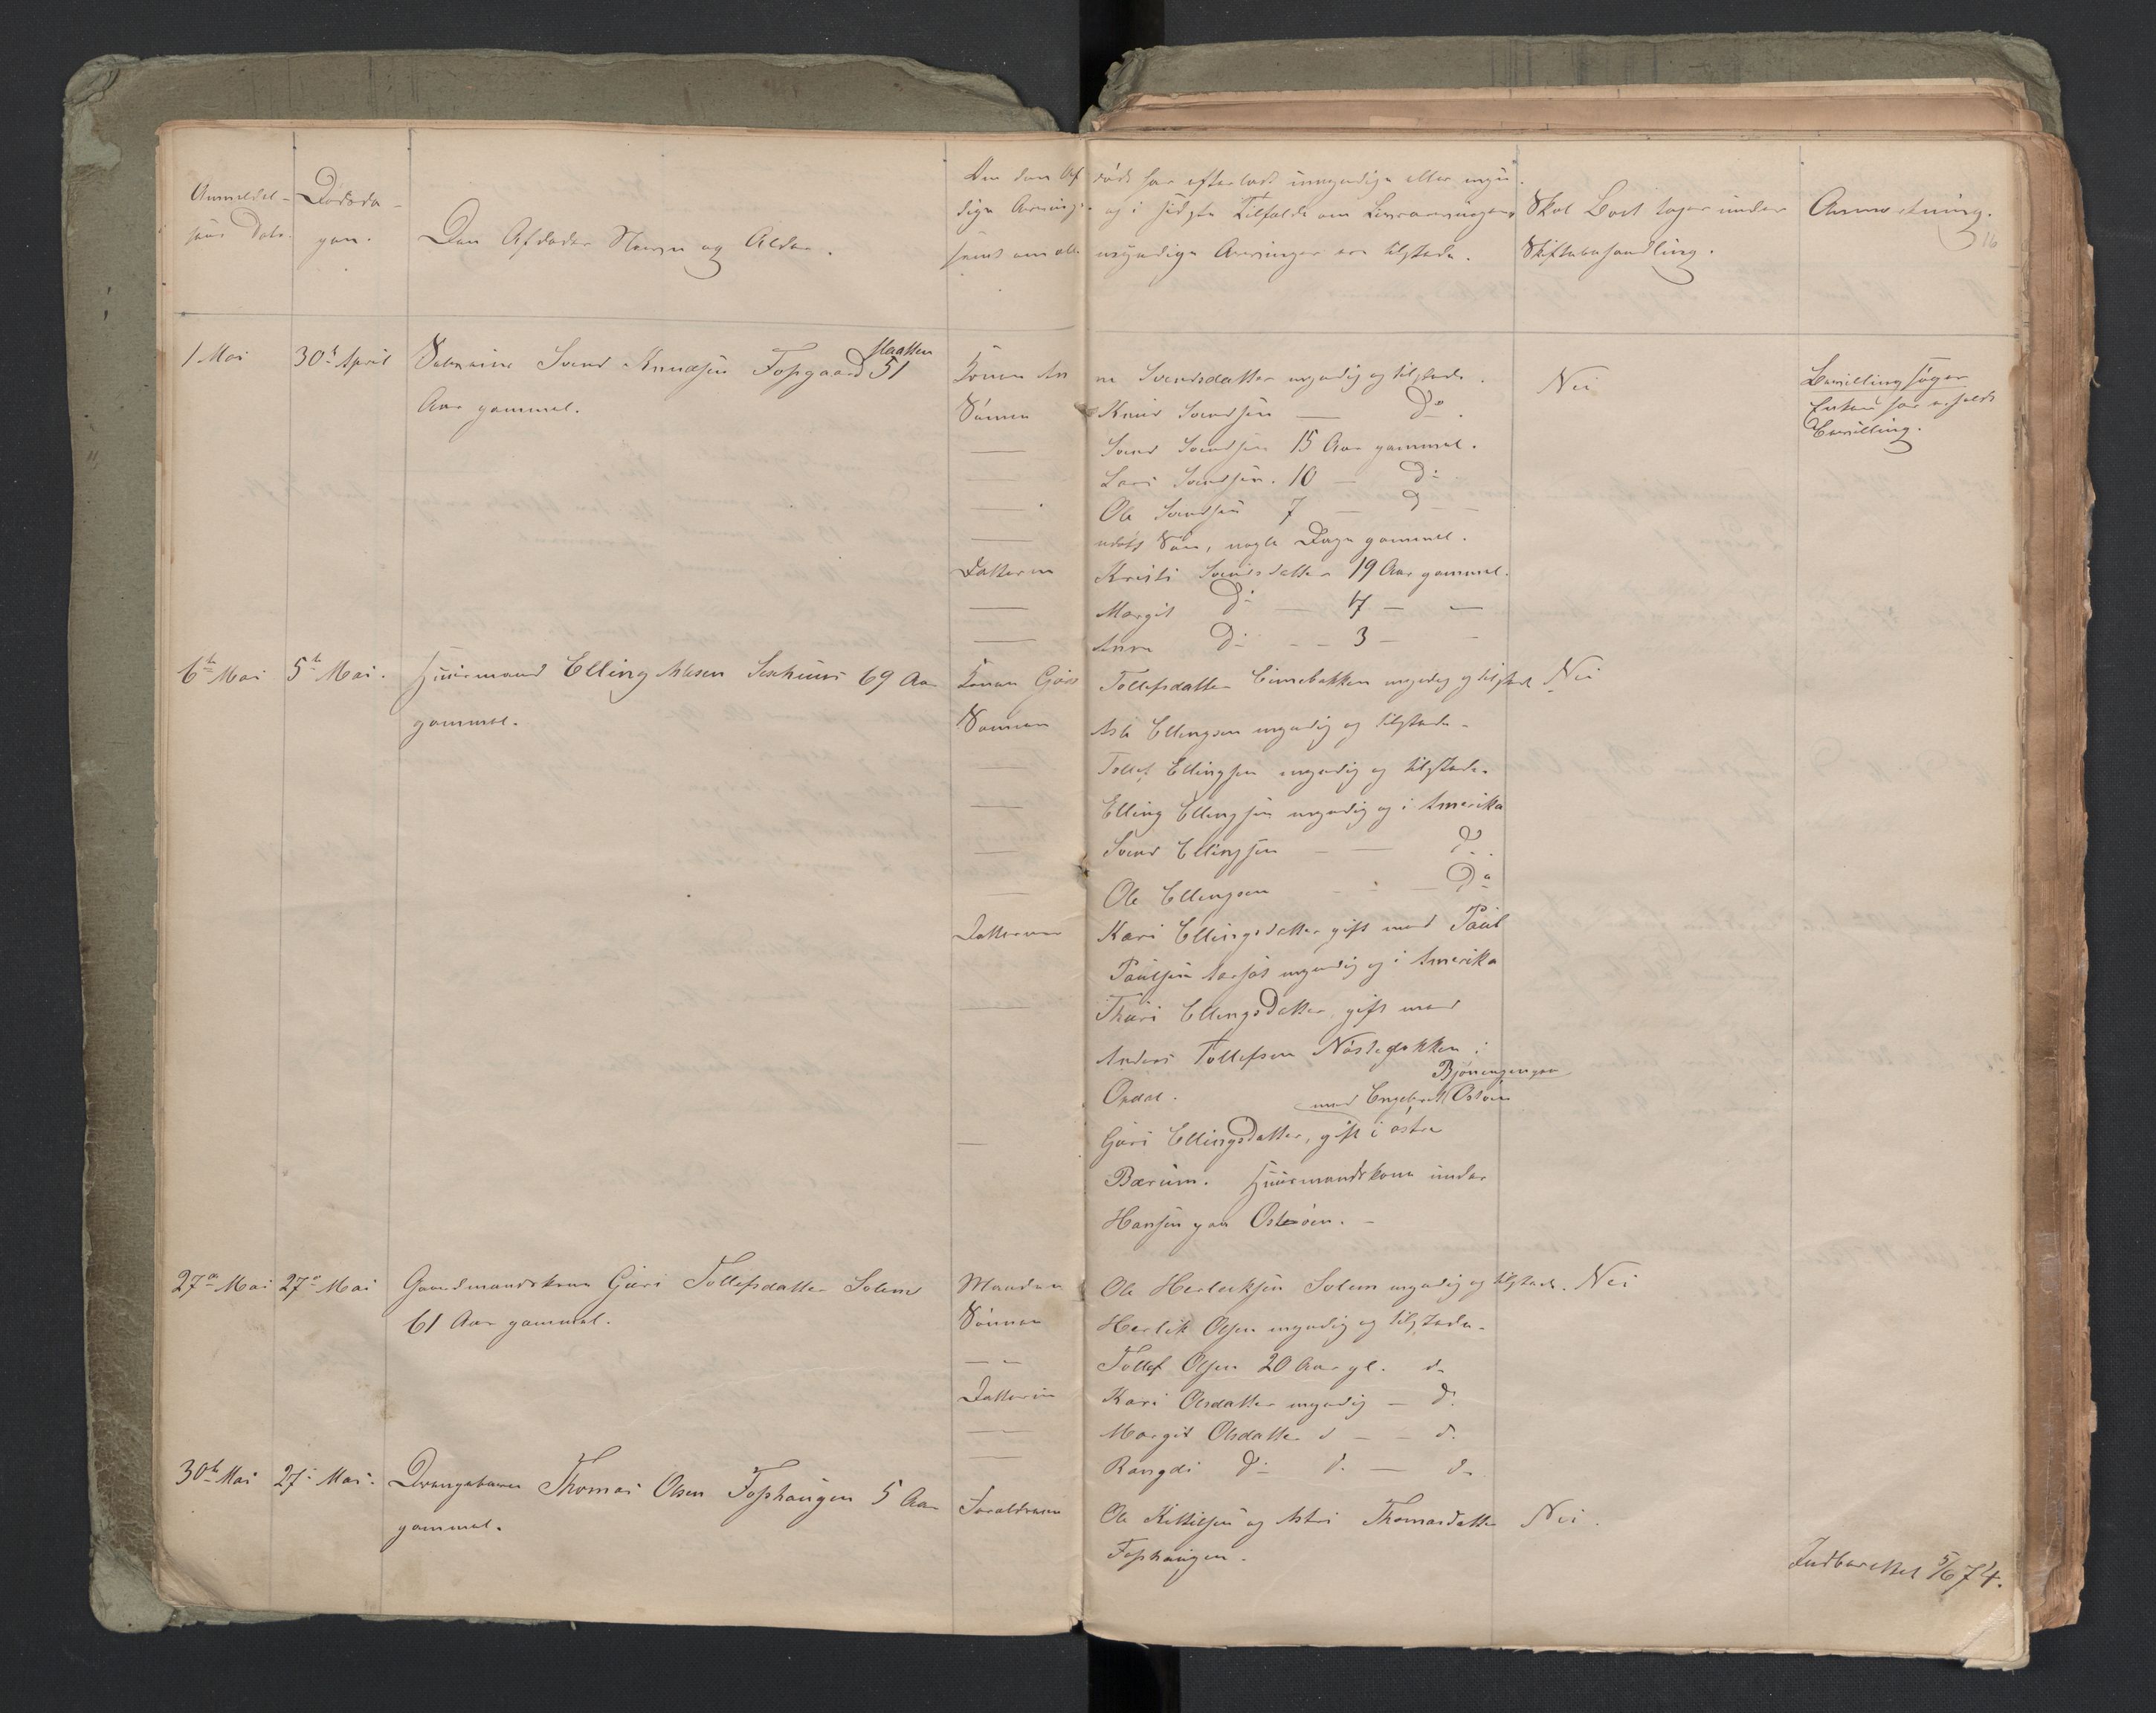 Anmeldel-
sens Dato.
Dödsda-
gen.
Den Afdødes Navn og Alder.
Om den Afdöde har efterladt umyndige eller myn-
dige Arvinger og i sidste Tilfælde om Livsarvinger,
samt om alle myndige Arvinger ere tilstede.
Skal Boet tages under
Skiftebehandling.
Anmærkning.
16
1 Mai 30te April Svend Knudsen Fosgaard 51
Slaatten
Aar gammel.
Konen Anne Svendsdatter myndig og tilstede.
Nei
Bevilling søges
Enken har erholdt
Bevilling.
Sönnen Knud Svendsen — Do.
— Svend Svendsen 15 Aar gammel.
— Lars Svendsen. 10 — Do
— Ole Svendsen 7 — D —
— udöbt Sön, nogle Dage gammel.
Datteren Kristi Svendsdatter 19 Aar gammel.
— Margit Do — 17 — —
— Anne Do — 3 — —
6te Mai 5te Mai. Huusmand Elling Aslesen 69 Aar
gammel.
Konen Tollefsdatter myndig og tilstede Nei
Sönnen Asle Ellingsen myndig og tilstede.
— Tollef Ellingsen myndig og tilstede.
— Elling Ellingsen myndig og i Amerika
— Svend Ellingsen — — Do.
— Ole Ellingsen — — Do
Datteren Kari Ellingsdatter gift med Paul
Paulsen myndig og i Amerika
— Thuri Ellingsdatter, gift med
Anders Tollefsen i
Opdal.
med Engebret
— Guri Ellingsdatter, gift i östre
Bærum. Huusmandskone under
Hansengen Osteröen.
27de Mai 27de Mai Gaardmandskone Guri Tollefsdatter Solem
61 Aar gammel.
Manden Ole Herleiksen Solem myndig og tilstede. Nei
Sönnen Herlik Olsen myndig og tilstede.
— Tollef Olsen 20 Aar gl. do
Datteren Kari Olsdatter myndig — do.
— Margit Olsdatter d — — do.
— Rangdi Do d. — do
30te Mai 27de Mai. Drengebarn Thomas Olsen Foshaugen 5 Aar
gammel.
Foreldrene Ole Kittilsen og Astri Thomasdatter Nei.
Foshaugen.
Indberettet 5/6 74.